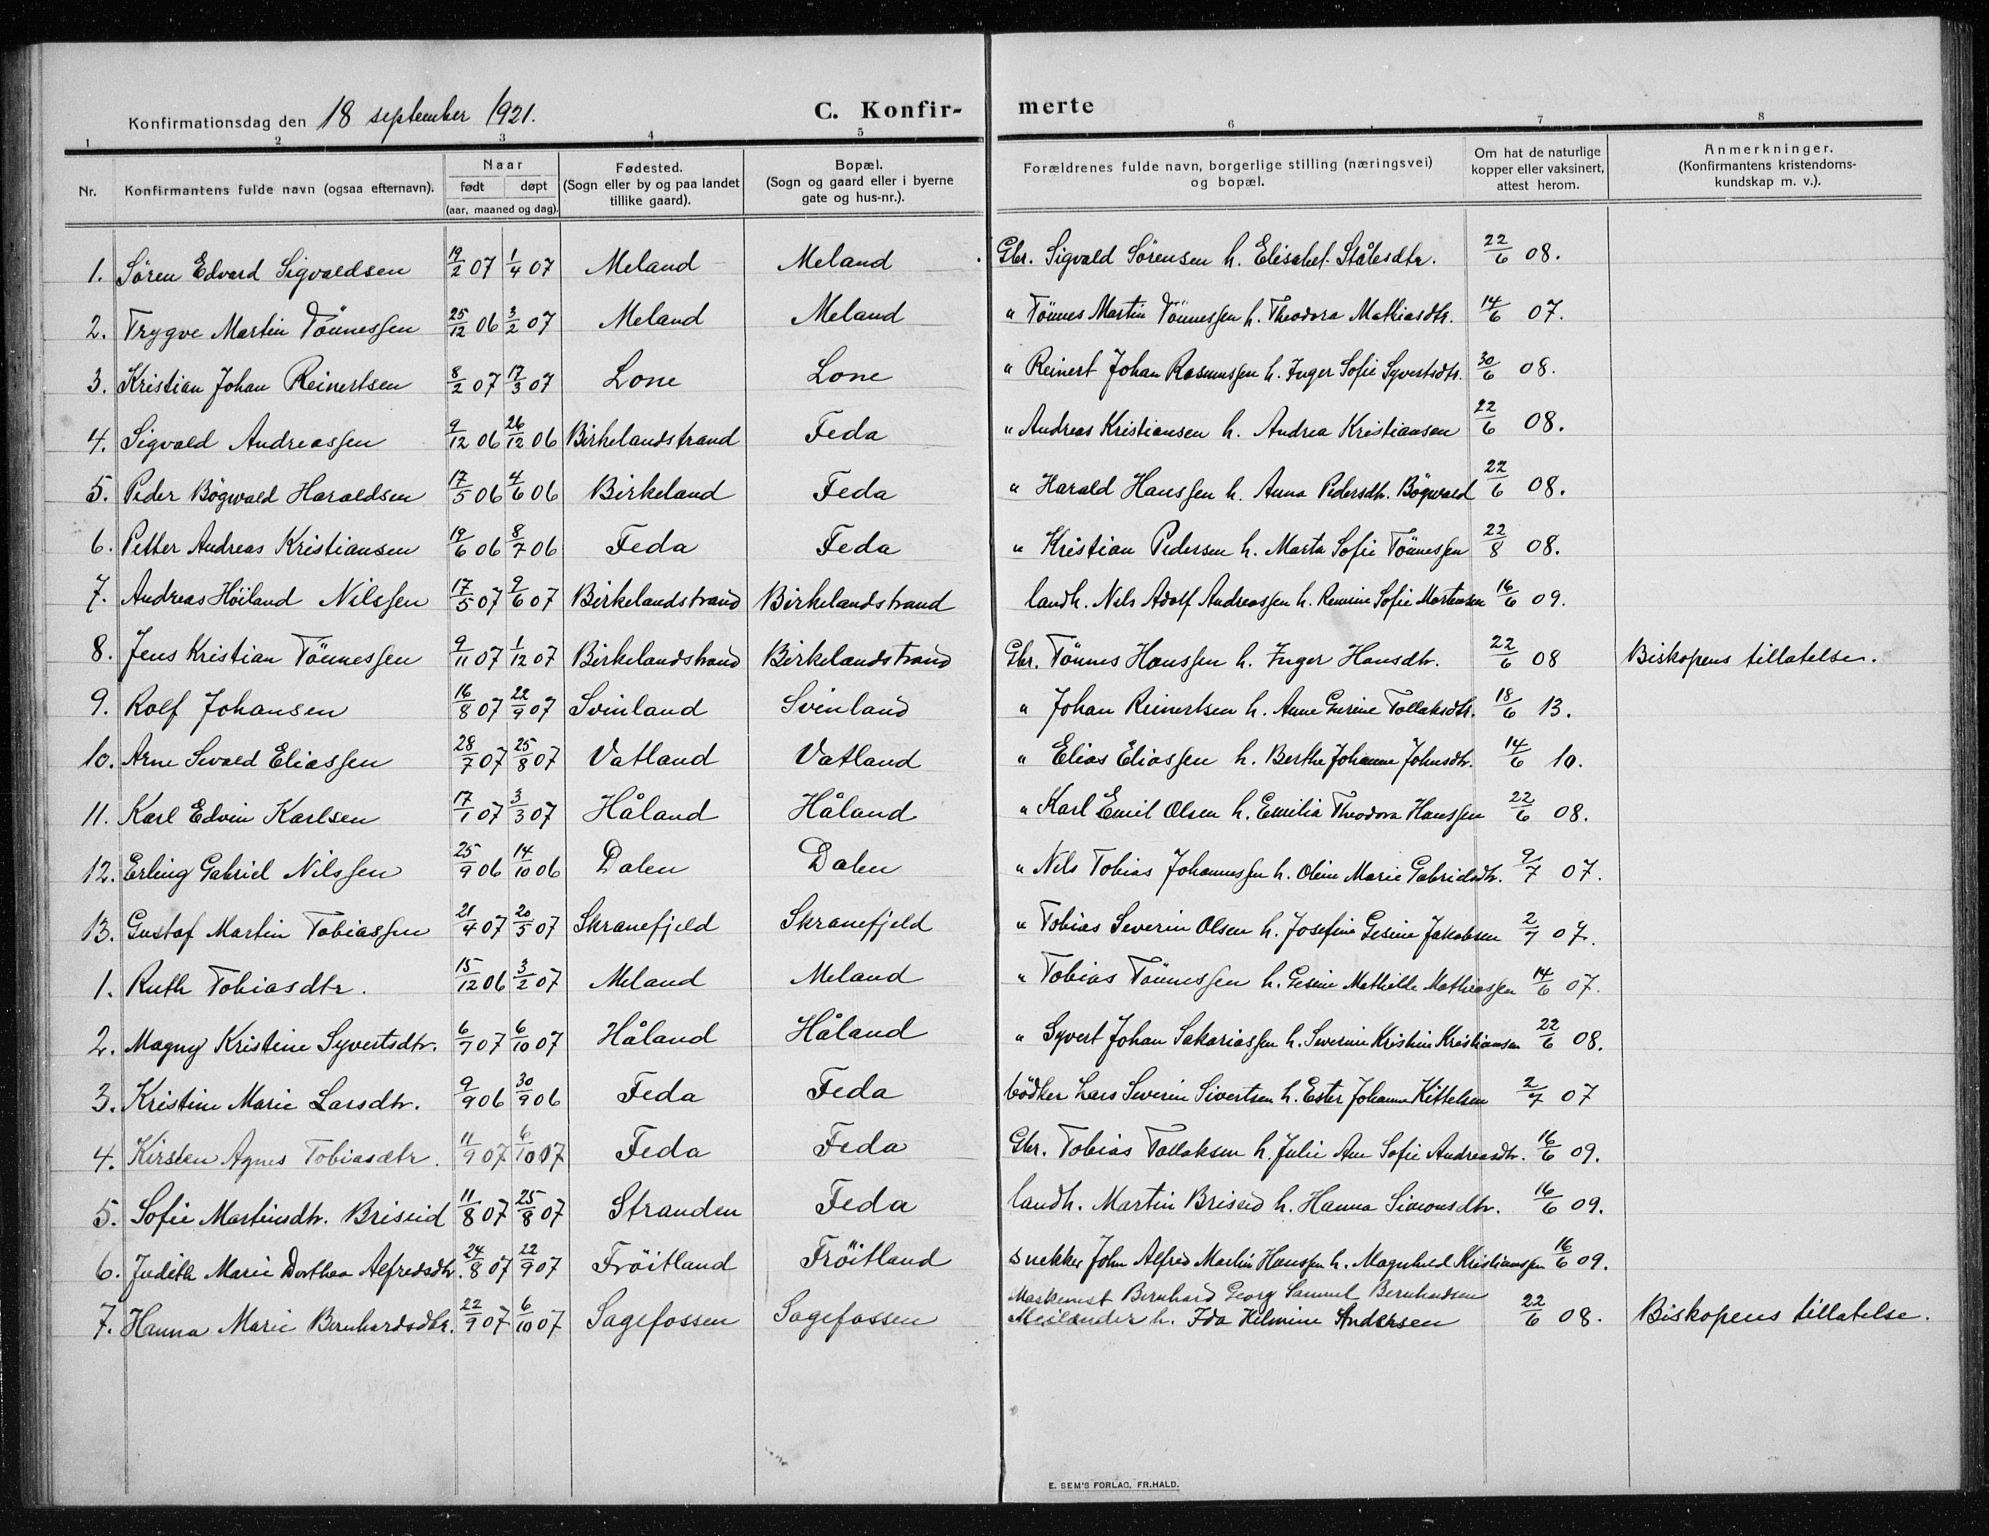 Konfirmationsdag den 18 september 1921. C. Konfir- merte
1 2 3 4 5 6 7 8
Nr. Konfirmantens fulde navn (ogsaa efternavn). Naar født døpt (aar, maaned og dag). Fødested. (Sogn eller by og paa landet tillike gaard). Bopæl. (Sogn og gaard eller i byerne gate og hus-nr.). Forældrenes fulde navn, borgerlige stilling (næringsvei) og bopæl. Om hat de naturlige kopper eller vaksinert, attest herom. Anmerkninger. (Konfirmantens kristendoms- kundskap m. v.).
1. Søren Edvard Sigvaldsen 19/2 07 1/4 07 Meland Meland Gbr. Sigvald Sørensen h. Elisabet Stålesdtr. 22/6 08.
2. Trygve Martin Tönnessen 25/12 06 3/2 07 Meland Meland " Tönnes Martin Tönnessen h. Theodora Mathiasdtr. 14/6 07.
3. Kristian Johan Reinertsen 8/2 07 17/3 07 Lone Lone " Reinert Johan Rasmussen h. Inger Sofie Syvertsdtr. 30/6 08.
4. Sigvald Andreassen 9/12 06 26/12 06 Birkelandstrand Feda " Andreas Kristiansen h. Andrea Kristiansen 22/6 08.
5. Peder Bögwald Haraldsen 17/5 06 4/6 06 Birkeland Feda " Harald Hanssen h. Anna Pedersdtr. Bögwald 22/6 08.
6. Petter Andreas Kristiansen 19/6 06 8/7 06 Feda Feda " Kristian Pedersen h. Marta Sofie Tönnessen 22/8 08.
7. Andreas Höiland Nilssen 17/5 07 9/6 07 Birkelandstrand Birkelandstrand landh. Nils Adolf Andreassen h. Sofie Mortensen 16/6 09.
8. Jens Kristian Tönnessen 9/11 07 1/12 07 Birkelandstrand Birkelandstrand Gbr. Tönnes Hanssen h. Inger Hansdtr. 22/6 08 Biskopens tillatelse.
9. Rolf Johansen 16/8 07 22/9 07 Svinland Svinland " Johan Reinertsen h. Anne Gurine Tollaksdtr. 18/6 13.
10. Arne Sevald Eliassen 28/7 07 25/8 07 Vatland Vatland " Elias Eliassen h. Berthe Johanne Johnsdtr. 14/6 10.
11. Karl Edvin Karlsen 17/1 07 3/3 07 Håland Håland " Karl Emil Olsen h. Emilia Theodora Hanssen 22/6 08.
12. Erling Gabriel Nilssen 25/9 06 14/10 06 Dalen Dalen " Nils Tobias Johannessen h. Oline Marie Gabrielsdtr. 9/7 07.
13. Gustaf Martin Tobiassen 21/4 07 20/5 07 Skranefjeld Skranefjeld " Tobias Severin Olsen h. Josefine Gesine Jakobsen 2/7 07.
1. Ruth Tobiasdtr. 15/12 06 3/2 07 Meland Meland " Tobias Tönnessen h. Gesine Mathilde Mathiassen 14/6 07.
2. Magny Kristine Syvertsdtr. 6/7 07 6/10 07 Håland Håland " Syvert Johan Sakariassen h. Severine Kristine Kristiansen 22/6 08.
3. Kristine Marie Larsdtr. 9/9 06 30/9 06 Feda Feda bödker Lars Severin Sivertsen h. Ester Johanne Kittelsen 2/7 07
4. Kirsten Agnes Tobiasdtr. 11/9 07 6/10 07 Feda Feda Gbr. Tobias Tollaksen h. Julie Ane Sofie Andreasdtr. 16/6 09.
5. Sofie Martinsdtr. Briseid 11/8 07 25/8 07 Stranden Feda landh. Martin Briseid h. Hanna Simonsdtr. 16/6 09.
6. Judith Marie Dorthea Alfredsdtr. 24/8 07 22/9 07 Fröitland Fröitland snekker John Alfred Martin Hanssen h. Magnhild Kristianssen 16/6 09.
7. Hanna Marie Bernhardsdtr. 22/9 07 6/10 07 Sagefossen Sagefossen Maskenest Bernhard Georg Samuel Berntsen
Meilænder h. Ida Helmine Andersen 22/6 08. Biskopens tillatelse.
E. SEM'S FORLAG, FR.HALD.